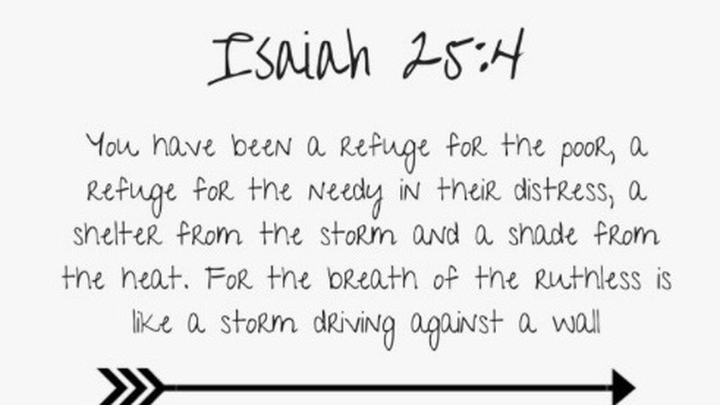 Isaiah 25:4
You have been a refuge for the poor, a
refuge for the needy in their distress, a
shelter from the storm and a shade from
the heat. For the breath of the ruthless is
like a storm driving against a wall